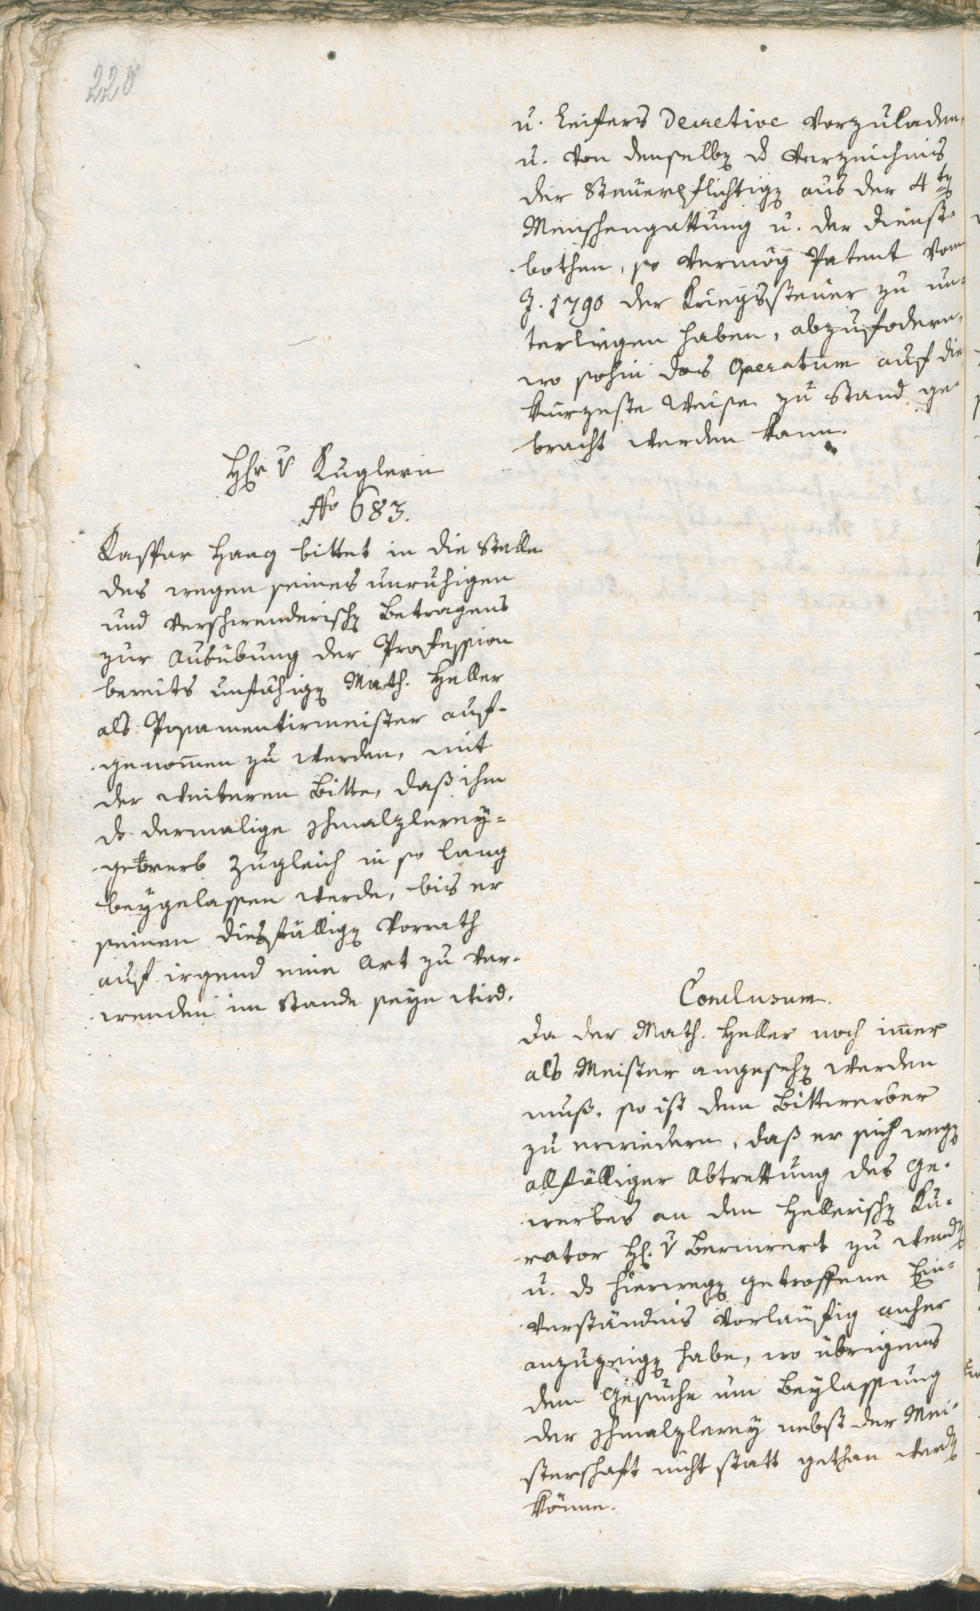 220
u. Leifers Decretive vorzuladen,
u. von denselben d Verzeichnis
der Steuerpflichtigen aus der 4ten
Menschengattung u. der Dienst=
bothen, so vermög Patent vom
J. 1790 der Kriegssteuer zu un=
terliegen haben, abzufodern,
wo sohin das Operatum auf die
kürzeste Weise zu Stand ge=
bracht werden kann.
Hr v Kuglern
No 683.
Kaspar Haag bittet in die Stelle
des wegen seines unruhigen
und verschwenderischen Betragens
zur Ausübung der Profession
bereits unfähigen Math. Heller
als Posamentirmeister auf=
genommen zu werden, mit
der weiteren Bitte, daß ihm
ds dermalige Schmalzlerey=
gewerb zugleich in so lang
beygelassen werde, bis er
seinen diesfälligen Vorrath
auf irgend eine Art zu ver=
wenden im Stande seyn wird.
Conclusum.
Da der Math. Heller noch immer
als Meister angesehen werden
muß, so ist dem Bittwerber
zu erwiedern, daß er sich wegen
allfälliger Abtrettung des Ge=
werbes an den Hellerischen Ku=
rator H. v zu wenden
u. ds hierwegen getroffene Ein=
verständnis vorläufig anher
anzuzeigen habe, wo übrigens
dem Gesuche um Beylassung
der Schmalzlerey nebst der Mei=
sterschaft nicht statt gethan werden
könne.